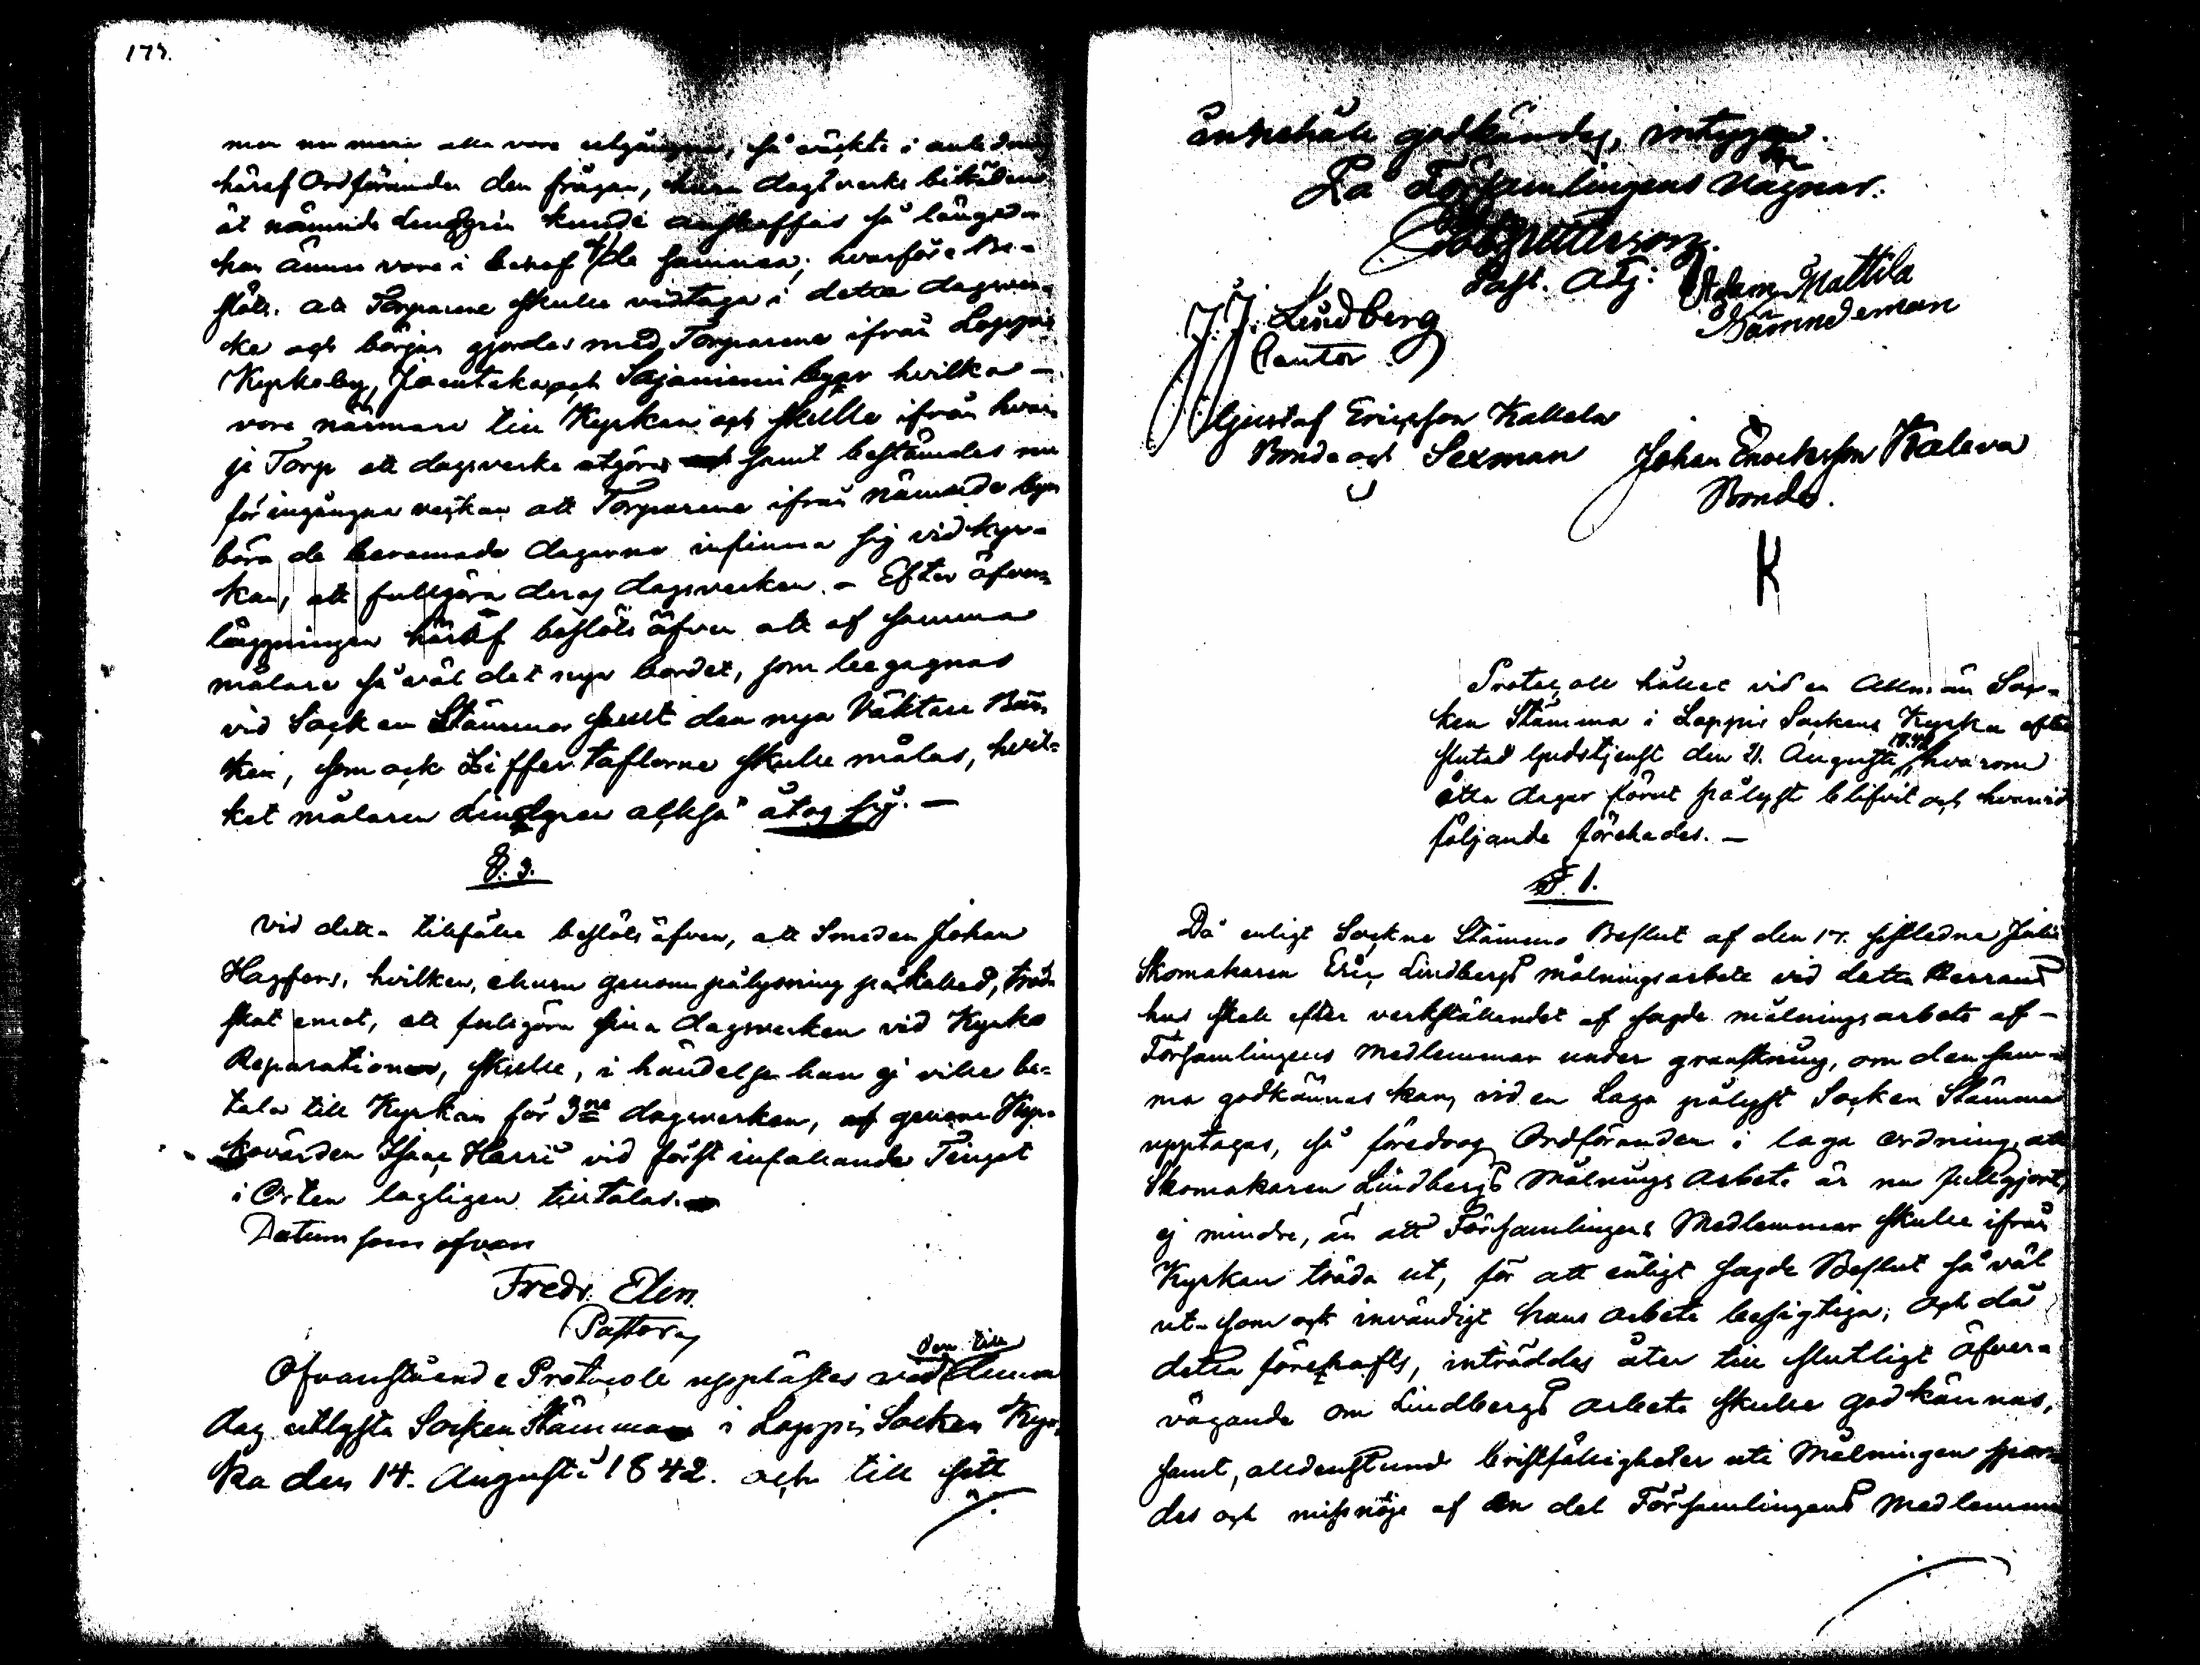 175.
men nu mera alla vore utgångne, så väckte i anledning
häraf Ordföranden den frågan, huru dagsverks biträden
åt nämnde Lindgrén kunde anskaffas så länge
han ännu vore i behof af de samma; hvarföre Be-
slöts. att Torparene skulle vidtaga i detta dagsver-
ke och början gjordes med Torparene ifrån Loppis
Kyrkoby, Joentaka och Sajaniemi byar hvilka -
vore närmare till Kyrkan och skulle ifrån hvar-
je Torp ett dagsverke utgöras samt bestämdes nu
för ingångna veckan att Torparene ifrån nämnde byar
böra de beramade dagarne infinna sig vid Kyr-
kan, att fullgöra deras dagsverken. - Efter öfver-
läggningen häraf beslöts äfven att af samma
målare så väl det nya bordet, som begagnas
vid Socken Stämmor samt den nya Väktare Bän-
ken, som ock Ziffer taflorne skulle målas, hvil-
ket målaren Lindgren också åtog sig. -
§. 3.
Vid detta tillfälle beslöts äfven, att Smeden Johan
Hagfors, hvilken, ehuru genom pålysning påkallad, tred-
skat emot, att fullgöra sina dagsverken vid Kyrko
Reparationen, skulle, i händelse han ej ville be-
tala till Kyrkan för 3ne dagsverken, genom Kyr-
kovärden Isaac Harri vid först infallande Tinget
i Orten lagligen tilltalas.
Datum som ofvan
Fredr. Elen.
Pastor
Ofvanstående Protocoll upplästes vid den till denna
dag utlysta Socken Stämma i Loppis Socken Kyr-
ka den 14. Augusti 1842. och till sitt
innehåll godkändes, intygga.
På Församlingens vägnar.
Past. Adj:
Adam Mattila
Nämndeman
J. J. Lindberg
Cantor
Gustaf Ericsson Kallela
Bonde och Sexman
Johan Enocksson Kaleva
Bonde.
K
Protocoll hållet vid en Allmän Soc-
ken Stämma i Loppis Sockens Kyrka efter
slutad Gudstjenst den 21. Augusti 1842, hvarom
åtta dagar förut pålyst blifvit och hvarvid
följande förehades. -
§ 1.
Då enligt Sockne Stämmo Beslut af den 17. sistledne Julii
Skomakaren Eric Lindbergs målningsarbete vid detta Herrans
hus skall efter verkställandet af sagde målningsarbete af -
Församlingens medlemmar under granskning, om den sam-
ma godkännas kan, vid en Laga pålyst Socken Stämma
upptagas, så föredrog Ordföranden i laga ordning, att
Skomakaren Lindbergs Målnings Arbete är nu fullgjort,
ej mindre, än att Församlingens Medlemmar skulle ifrån
Kyrkan träda ut, för att enligt sagde Beslut så väl
ut- som ock invändigt hans arbete besigtiga; och då
detta förehafts, inträddes åter till slutligt öfver-
vägande om Lindbergs arbete skulle godkännas,
samt, alldenstund bristfälligheter uti Målningen spor-
des och missnöje af en del Församlingens Medlemmar